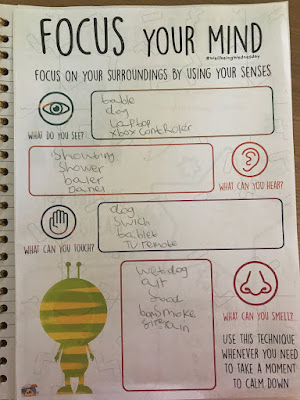 FOCUS YOUR MIND
#WellbeingWednesday
FOCUS ON YOUR SURROUNDINGS BY USING YOUR SENSES
WHAT DO YOU SEE?
bable
dog
laptop
xbox controler
Showting
Shower
baler
WHAT CAN YOU HEAR?
WHAT CAN YOU TOUCH?
dog
Swich
bablet
TV remote
wet dog
food
WHAT CAN YOU SMELL?
USE THIS TECHNIQUE
WHENEVER YOU NEED
TO TAKE A MOMENT
TO CALM DOWN